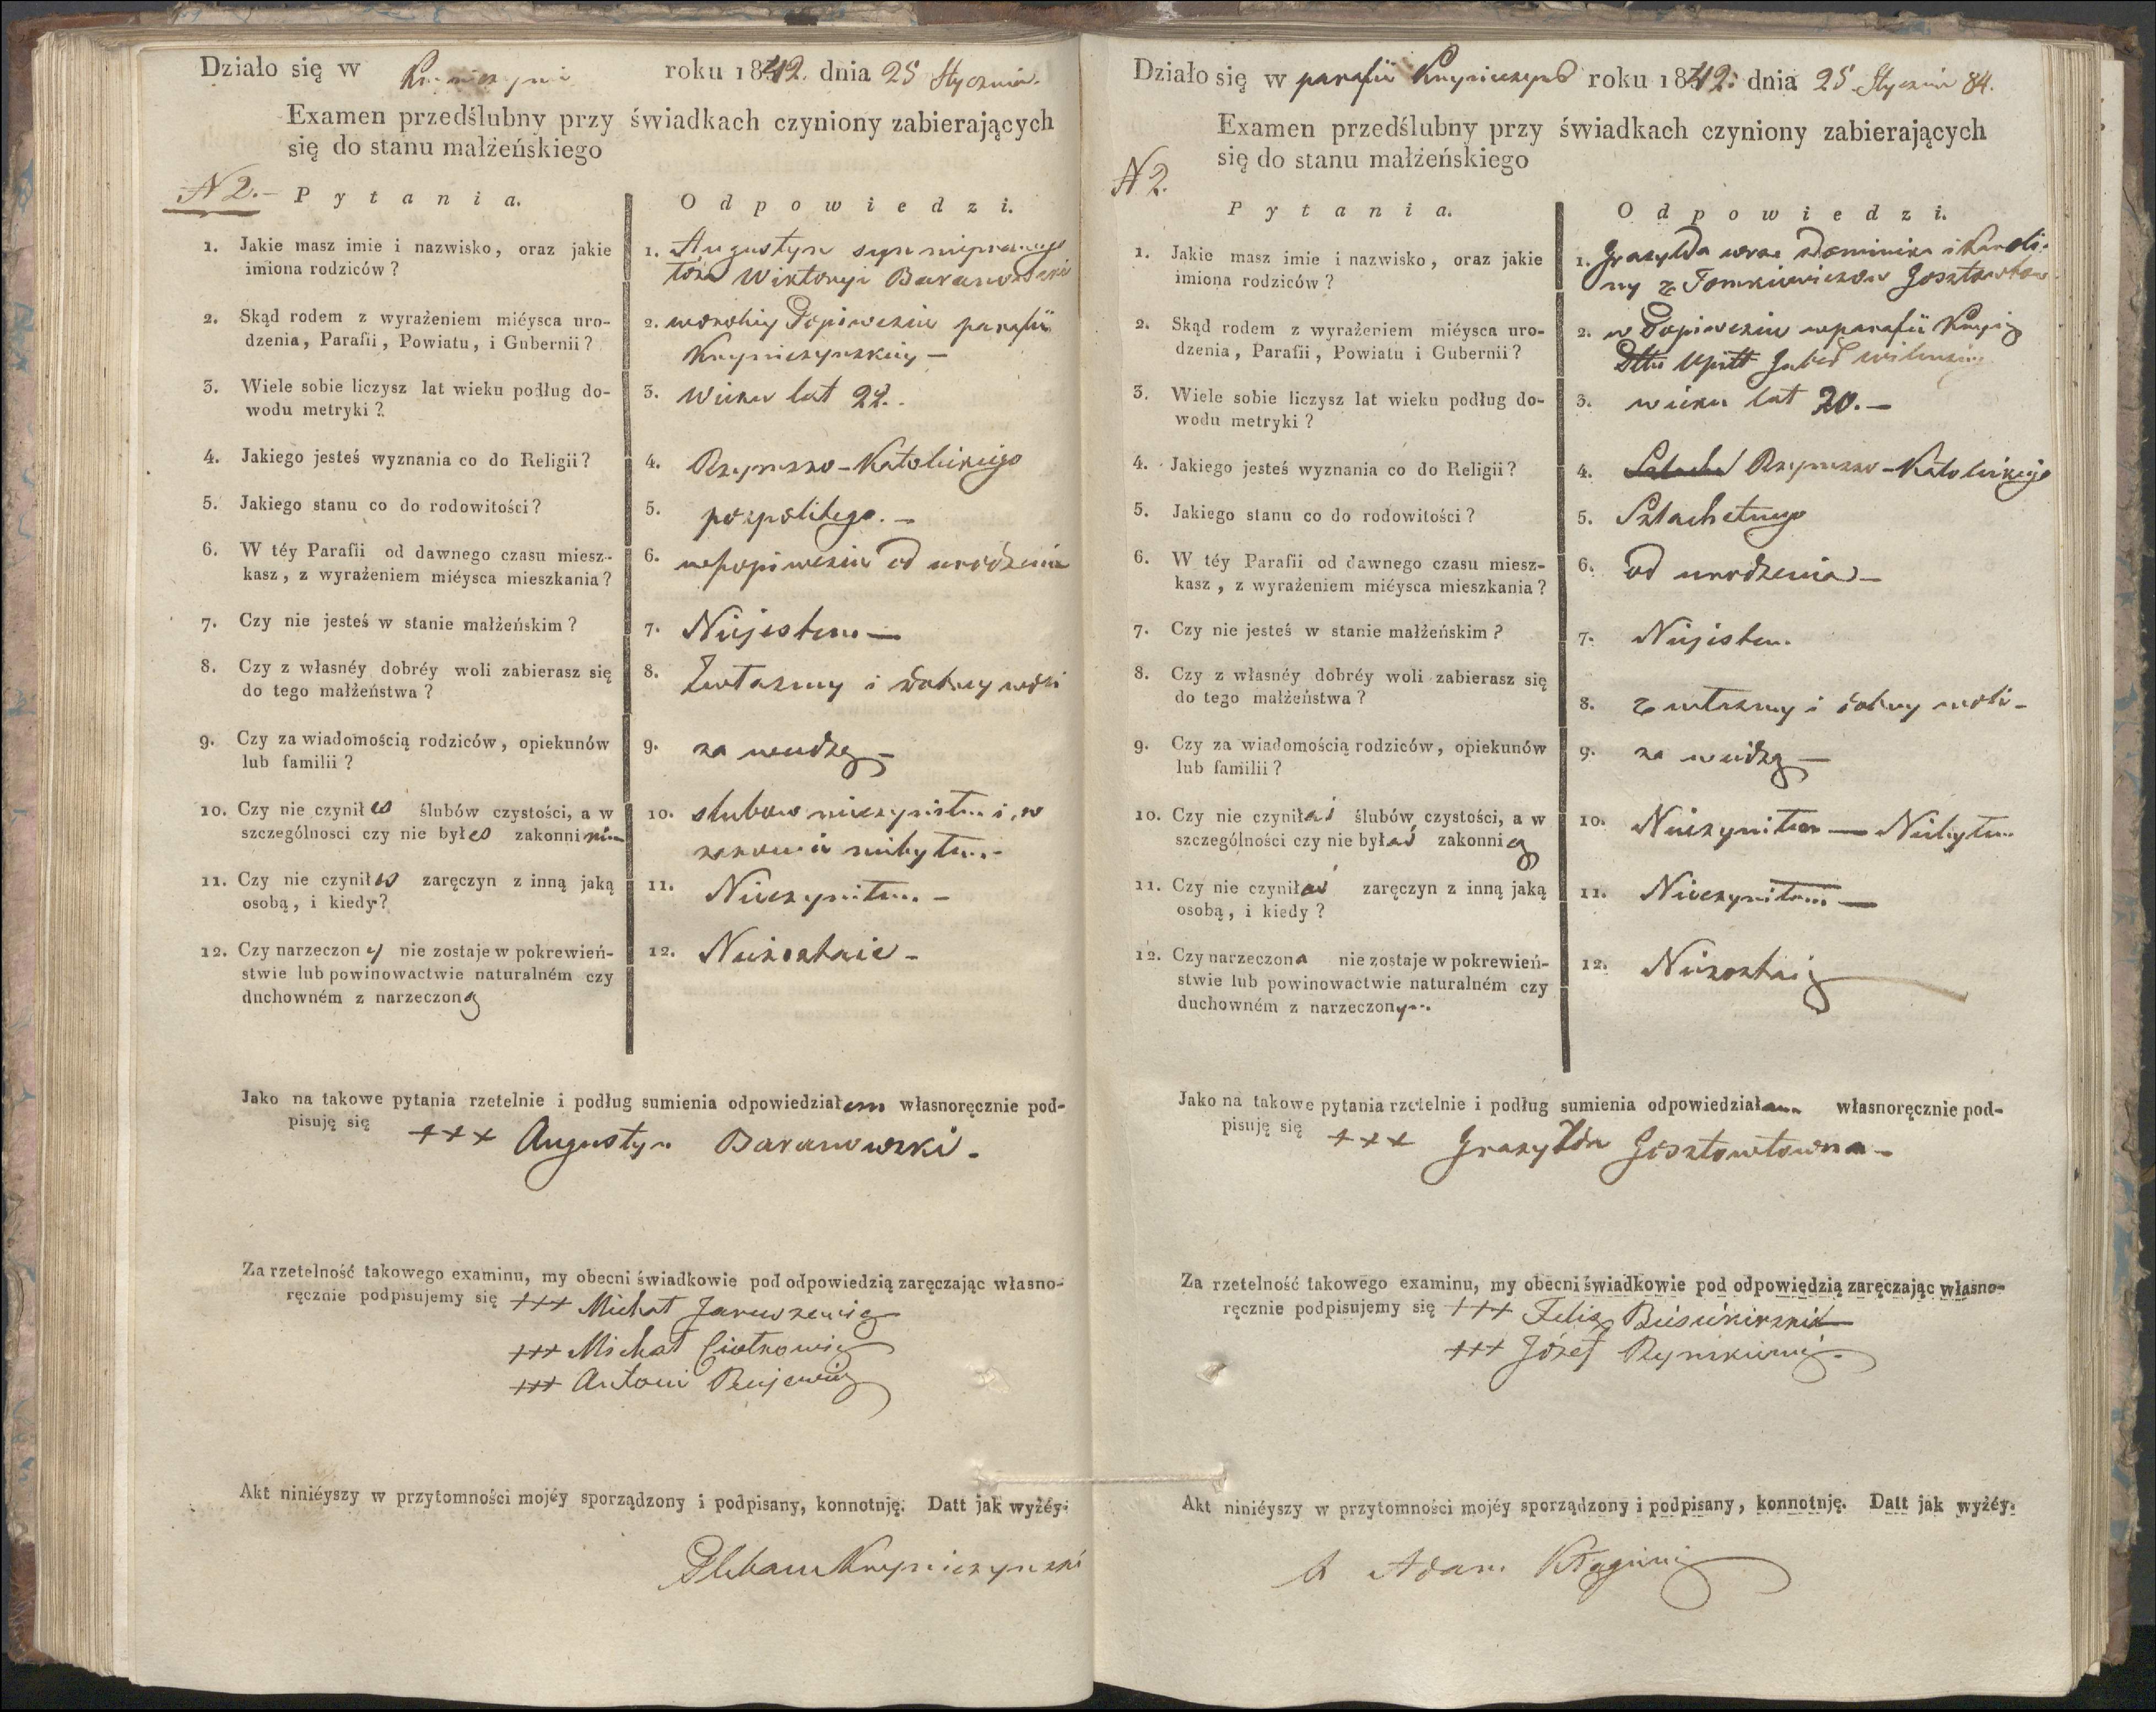 Działo się w roku 1842. dnia 25 Stycznia.
Examen przedślubny przy świadkach czyniony zabierających
się do stanu małżeńskiego
N 2.– Pytania. Odpowiedzi.
1. Jakie masz imie i nazwisko, oraz jakie
imiona rodziców?
1. Augustyn syn
Wiktoryi Baranowski
2. Skąd rodem z wyrażeniem miéysca uro-
dzenia, Parafii, Powiatu, i Gubernii?
2. parafii
3. Wiele sobie liczysz lat wieku podług do-
wodu metryki?
3. wieku lat 22.
4. Jakiego jesteś wyznania co do Religii?
4. Rzymsko-Katolickiego
5. Jakiego stanu co do rodowitości?
5. pospolitego. –
6. W téy Parafii od dawnego czasu miesz-
kasz, z wyrażeniem miéysca mieszkania?
6. od urodzenia
7. Czy nie jesteś w stanie małżeńskim?
7. Niejestem —
8. Czy z własnéy dobréy woli zabierasz się
do tego małżeństwa?
8. Zwłasney i dobrey woli
9. Czy za wiadomością rodziców, opiekunów
lub familii?
9. za wiedzą –
10. Czy nie czynił es ślubów czystości, a w
szczególnosci czy nie był es zakonnikiem
10. slubow nieczyniłem i w
zakonie niebyłem –
11. Czy nie czynił es zaręczyn z inną jaką
osobą, i kiedy?
11. Nieczyniłem. –
12. Czy narzeczon y nie zostaje w pokrewień-
stwie lub powinowactwie naturalném czy
duchowném z narzeczoną
12. Niezostaie –
Jako na takowe pytania rzetelnie i podług sumienia odpowiedziałem własnoręcznie pod-
pisuję się +++ Augustyn Baranowski.
Za rzetelność takowego examinu, my obecni świadkowie pod odpowiedzią zaręczając własno-
ręcznie podpisujemy się +++ Michał
+++ Michał
+++ Antoni
Akt niniéyszy w przytomności mojéy sporządzony i podpisany, konnotuję. Datt jak wyżéy.
Pleban
Działo się w parafii roku 1842: dnia 25 Stycznia 84.
Examen przedślubny przy świadkach czyniony zabierających
się do stanu małżeńskiego
N 2.
Pytania. Odpowiedzi.
1. Jakie masz imie i nazwisko, oraz jakie
imiona rodziców?
1. Grazylda Dominika i Karoli-
ny z Tomkiewiczow
2. Skąd rodem z wyrażeniem miéysca uro-
dzenia, Parafii, Powiatu i Gubernii?
2. w parafii
3. Wiele sobie liczysz lat wieku podług do-
wodu metryki?
3. wieku lat 20. –
4. Jakiego jesteś wyznania co do Religii?
4. Rzymsko-Katolickiego
5. Jakiego stanu co do rodowitości?
5. Szlachetnego
6. W téy Parafii od dawnego czasu miesz-
kasz, z wyrażeniem miéysca mieszkania?
6. od urodzenia –
7. Czy nie jesteś w stanie małżeńskim?
7. Niejestem.
8. Czy z własnéy dobréy woli zabierasz się
do tego małżeństwa?
8. z własney i dobrey woli –
9. Czy za wiadomością rodziców, opiekunów
lub familii?
9. za wiedzą —
10. Czy nie czyniłaś ślubów czystości, a w
szczególności czy nie byłaś zakonnicą
10. Nieczyniłam — Niebyłam
11. Czy nie czyniłaś zaręczyn z inną jaką
osobą, i kiedy?
11. Nieczyniłam —
12. Czy narzeczona nie zostaje w pokrewień-
stwie lub powinowactwie naturalném czy
duchowném z narzeczonym.
12. Niezostaię
Jako na takowe pytania rzetelnie i podług sumienia odpowiedziałam własnoręcznie pod-
pisuję się +++ Grazylda Gosztowtowna –
Za rzetelność takowego examinu, my obecni świadkowie pod odpowiedzią zaręczając własno-
ręcznie podpisujemy się +++ Felix
+++ Józef
Akt niniéyszy w przytomności mojéy sporządzony i podpisany, konnotuję. Datt jak wyżéy.
Adam